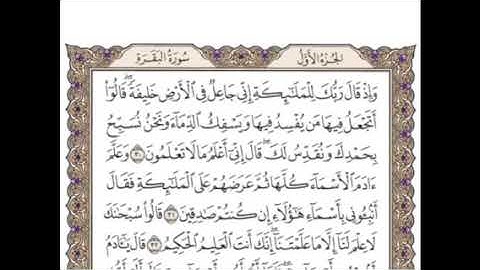 سُورَةُ البَقَرَةِ الجُزْءُ الأَوَّلُ
وَإِذْ قَالَ رَبُّكَ لِلْمَلَٰٓئِكَةِ إِنِّى جَاعِلٌ فِى ٱلْأَرْضِ خَلِيفَةً ۖ قَالُوٓا۟
أَتَجْعَلُ فِيهَا مَن يُفْسِدُ فِيهَا وَيَسْفِكُ ٱلدِّمَآءَ وَنَحْنُ نُسَبِّحُ
بِحَمْدِكَ وَنُقَدِّسُ لَكَ ۖ قَالَ إِنِّىٓ أَعْلَمُ مَا لَا تَعْلَمُونَ ٣٠ وَعَلَّمَ
ءَادَمَ ٱلْأَسْمَآءَ كُلَّهَا ثُمَّ عَرَضَهُمْ عَلَى ٱلْمَلَٰٓئِكَةِ فَقَالَ
أَنۢبِـُٔونِى بِأَسْمَآءِ هَٰٓؤُلَآءِ إِن كُنتُمْ صَٰدِقِينَ ٣١ قَالُوا۟ سُبْحَٰنَكَ
لَا عِلْمَ لَنَآ إِلَّا مَا عَلَّمْتَنَآ ۖ إِنَّكَ أَنتَ ٱلْعَلِيمُ ٱلْحَكِيمُ ٣٢ قَالَ يَٰٓـَٔادَمُ